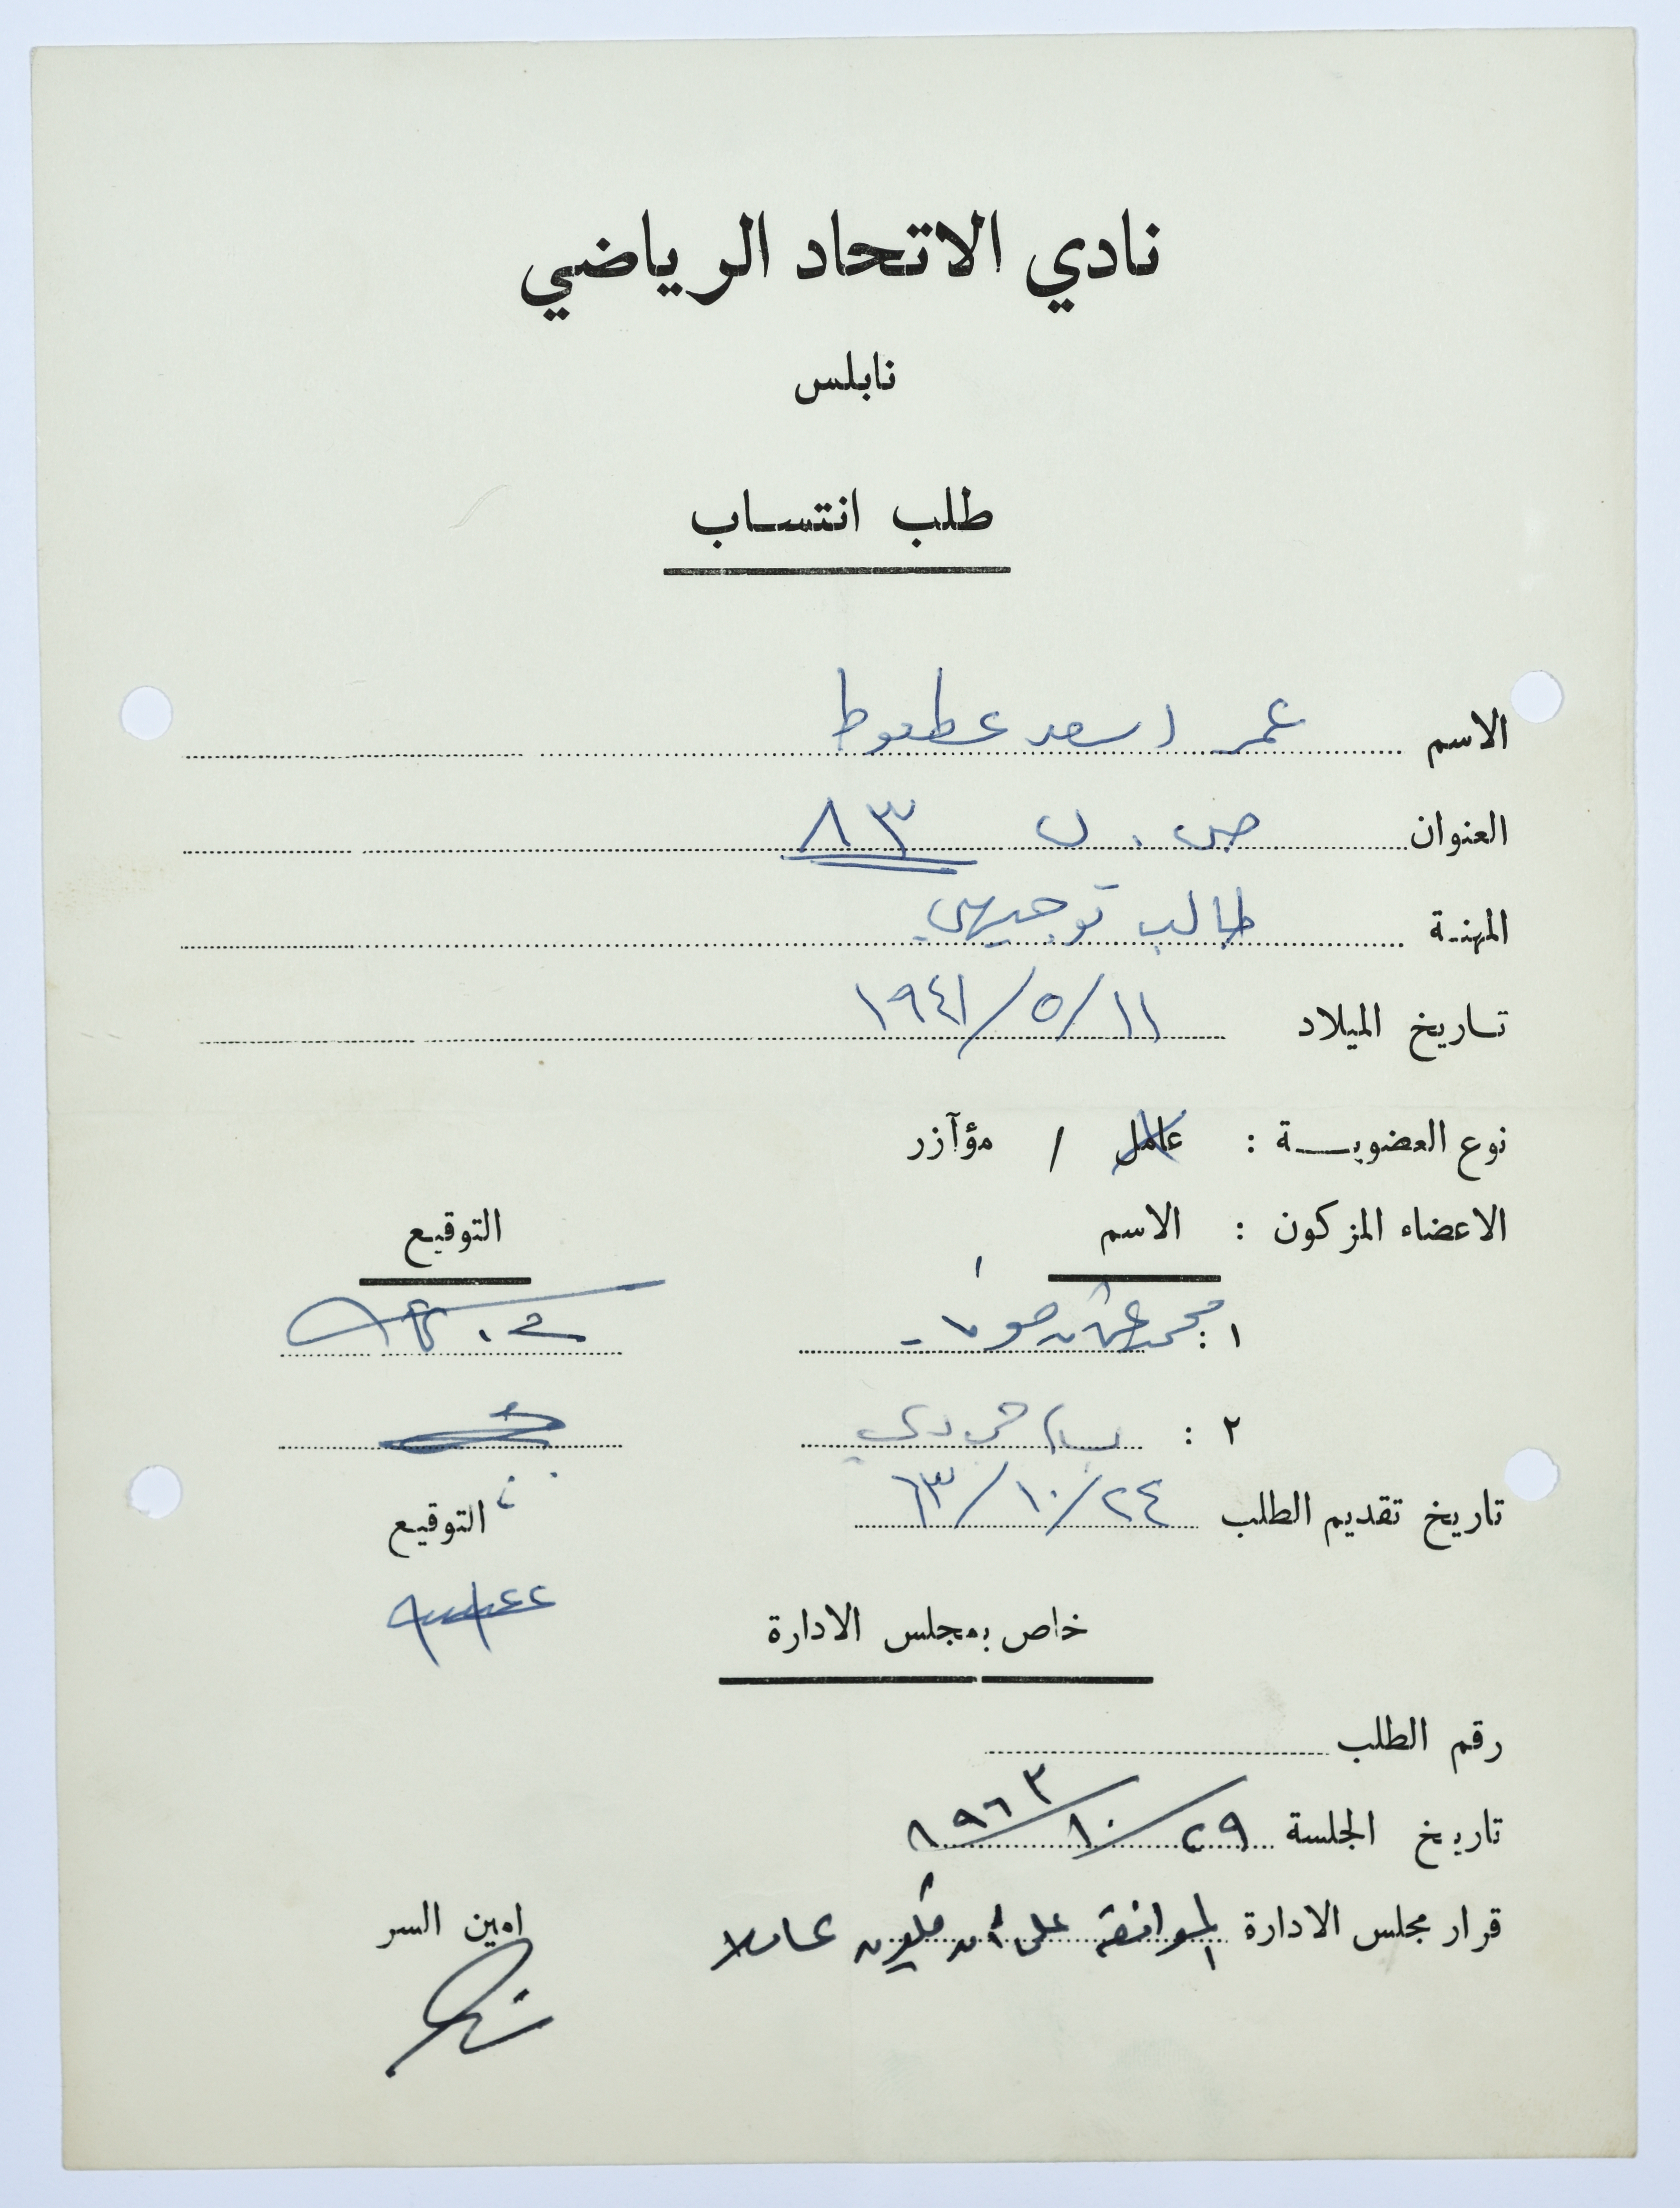 نادي الاتحاد الرياضي
نابلس
طلب انتساب
الاسم عمر اسعد عطعوط
العنوان ص . ب ٨٣
المهنة طالب توجيهي
تاريخ الميلاد ١١/٥/١٩٤١
نوع العضوية : عامل / مؤآزر
الاعضاء المزكون : الاسم التوقيع
١ : محمد عثمان
٢ :
تاريخ تقديم الطلب ٢٤/١٠/٦٣ التوقيع
خاص بمجلس الادارة
رقم الطلب
تاريخ الجلسة ٢٩/١٠/١٩٦٣
قرار مجلس الادارة الموافقة على أن يكون عاملا امين السر